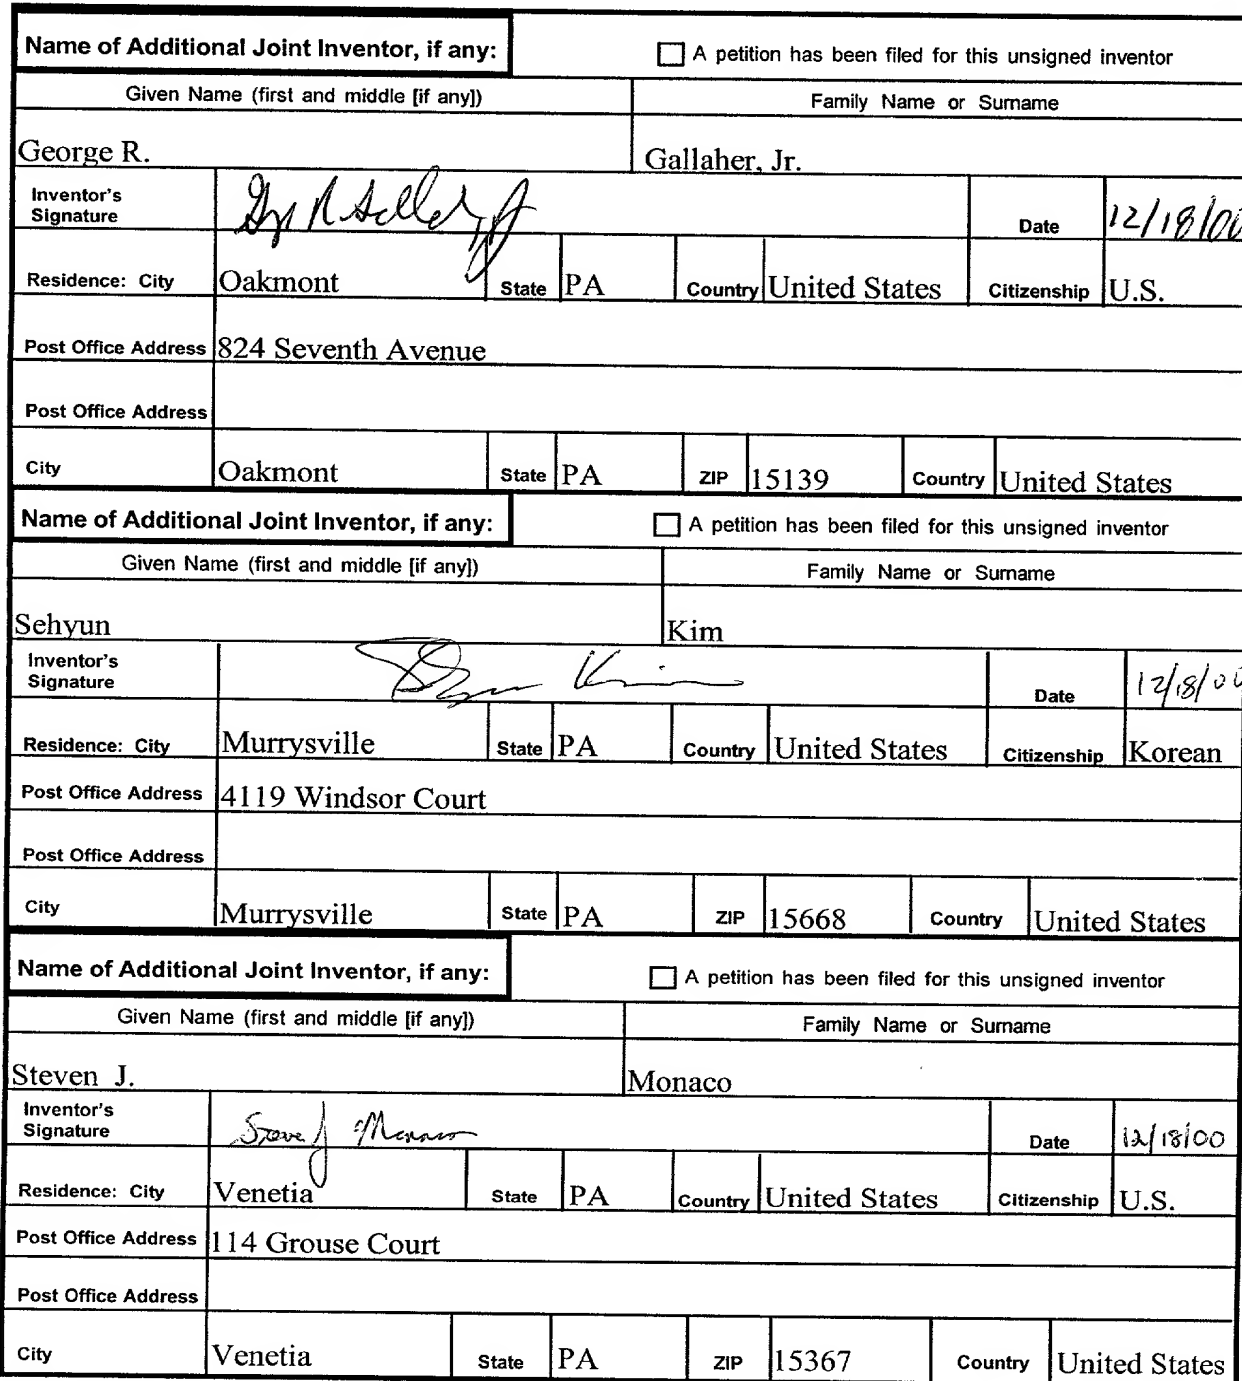 Name of Additional Joint Inventor, if any: A petition has been filed for this unsigned inventor
Given Name (first and middle [if any]) Family Name or Surname
George R. Gallaher, Jr.
Inventor's Signature Date 12/18/00
Residence: City Oakmont State PA Country United States Citizenship U.S.
Post Office Address 824 Seventh Avenue
Post Office Address
City Oakmont State PA ZIP 15139 Country United States
Name of Additional Joint Inventor, if any: A petition has been filed for this unsigned inventor
Given Name (first and middle [if any]) Family Name or Surname
Sehyun Kim
Inventor's Signature Sehyun Kim Date 12/18/00
Residence: City Murrysville State PA Country United States Citizenship Korean
Post Office Address 4119 Windsor Court
Post Office Address
City Murrysville State PA ZIP 15668 Country United States
Name of Additional Joint Inventor, if any: A petition has been filed for this unsigned inventor
Given Name (first and middle [if any]) Family Name or Surname
Steven J. Monaco
Inventor's Signature Steve J Monaco Date 12/18/00
Residence: City Venetia State PA Country United States Citizenship U.S.
Post Office Address 114 Grouse Court
Post Office Address
City Venetia State PA ZIP 15367 Country United States